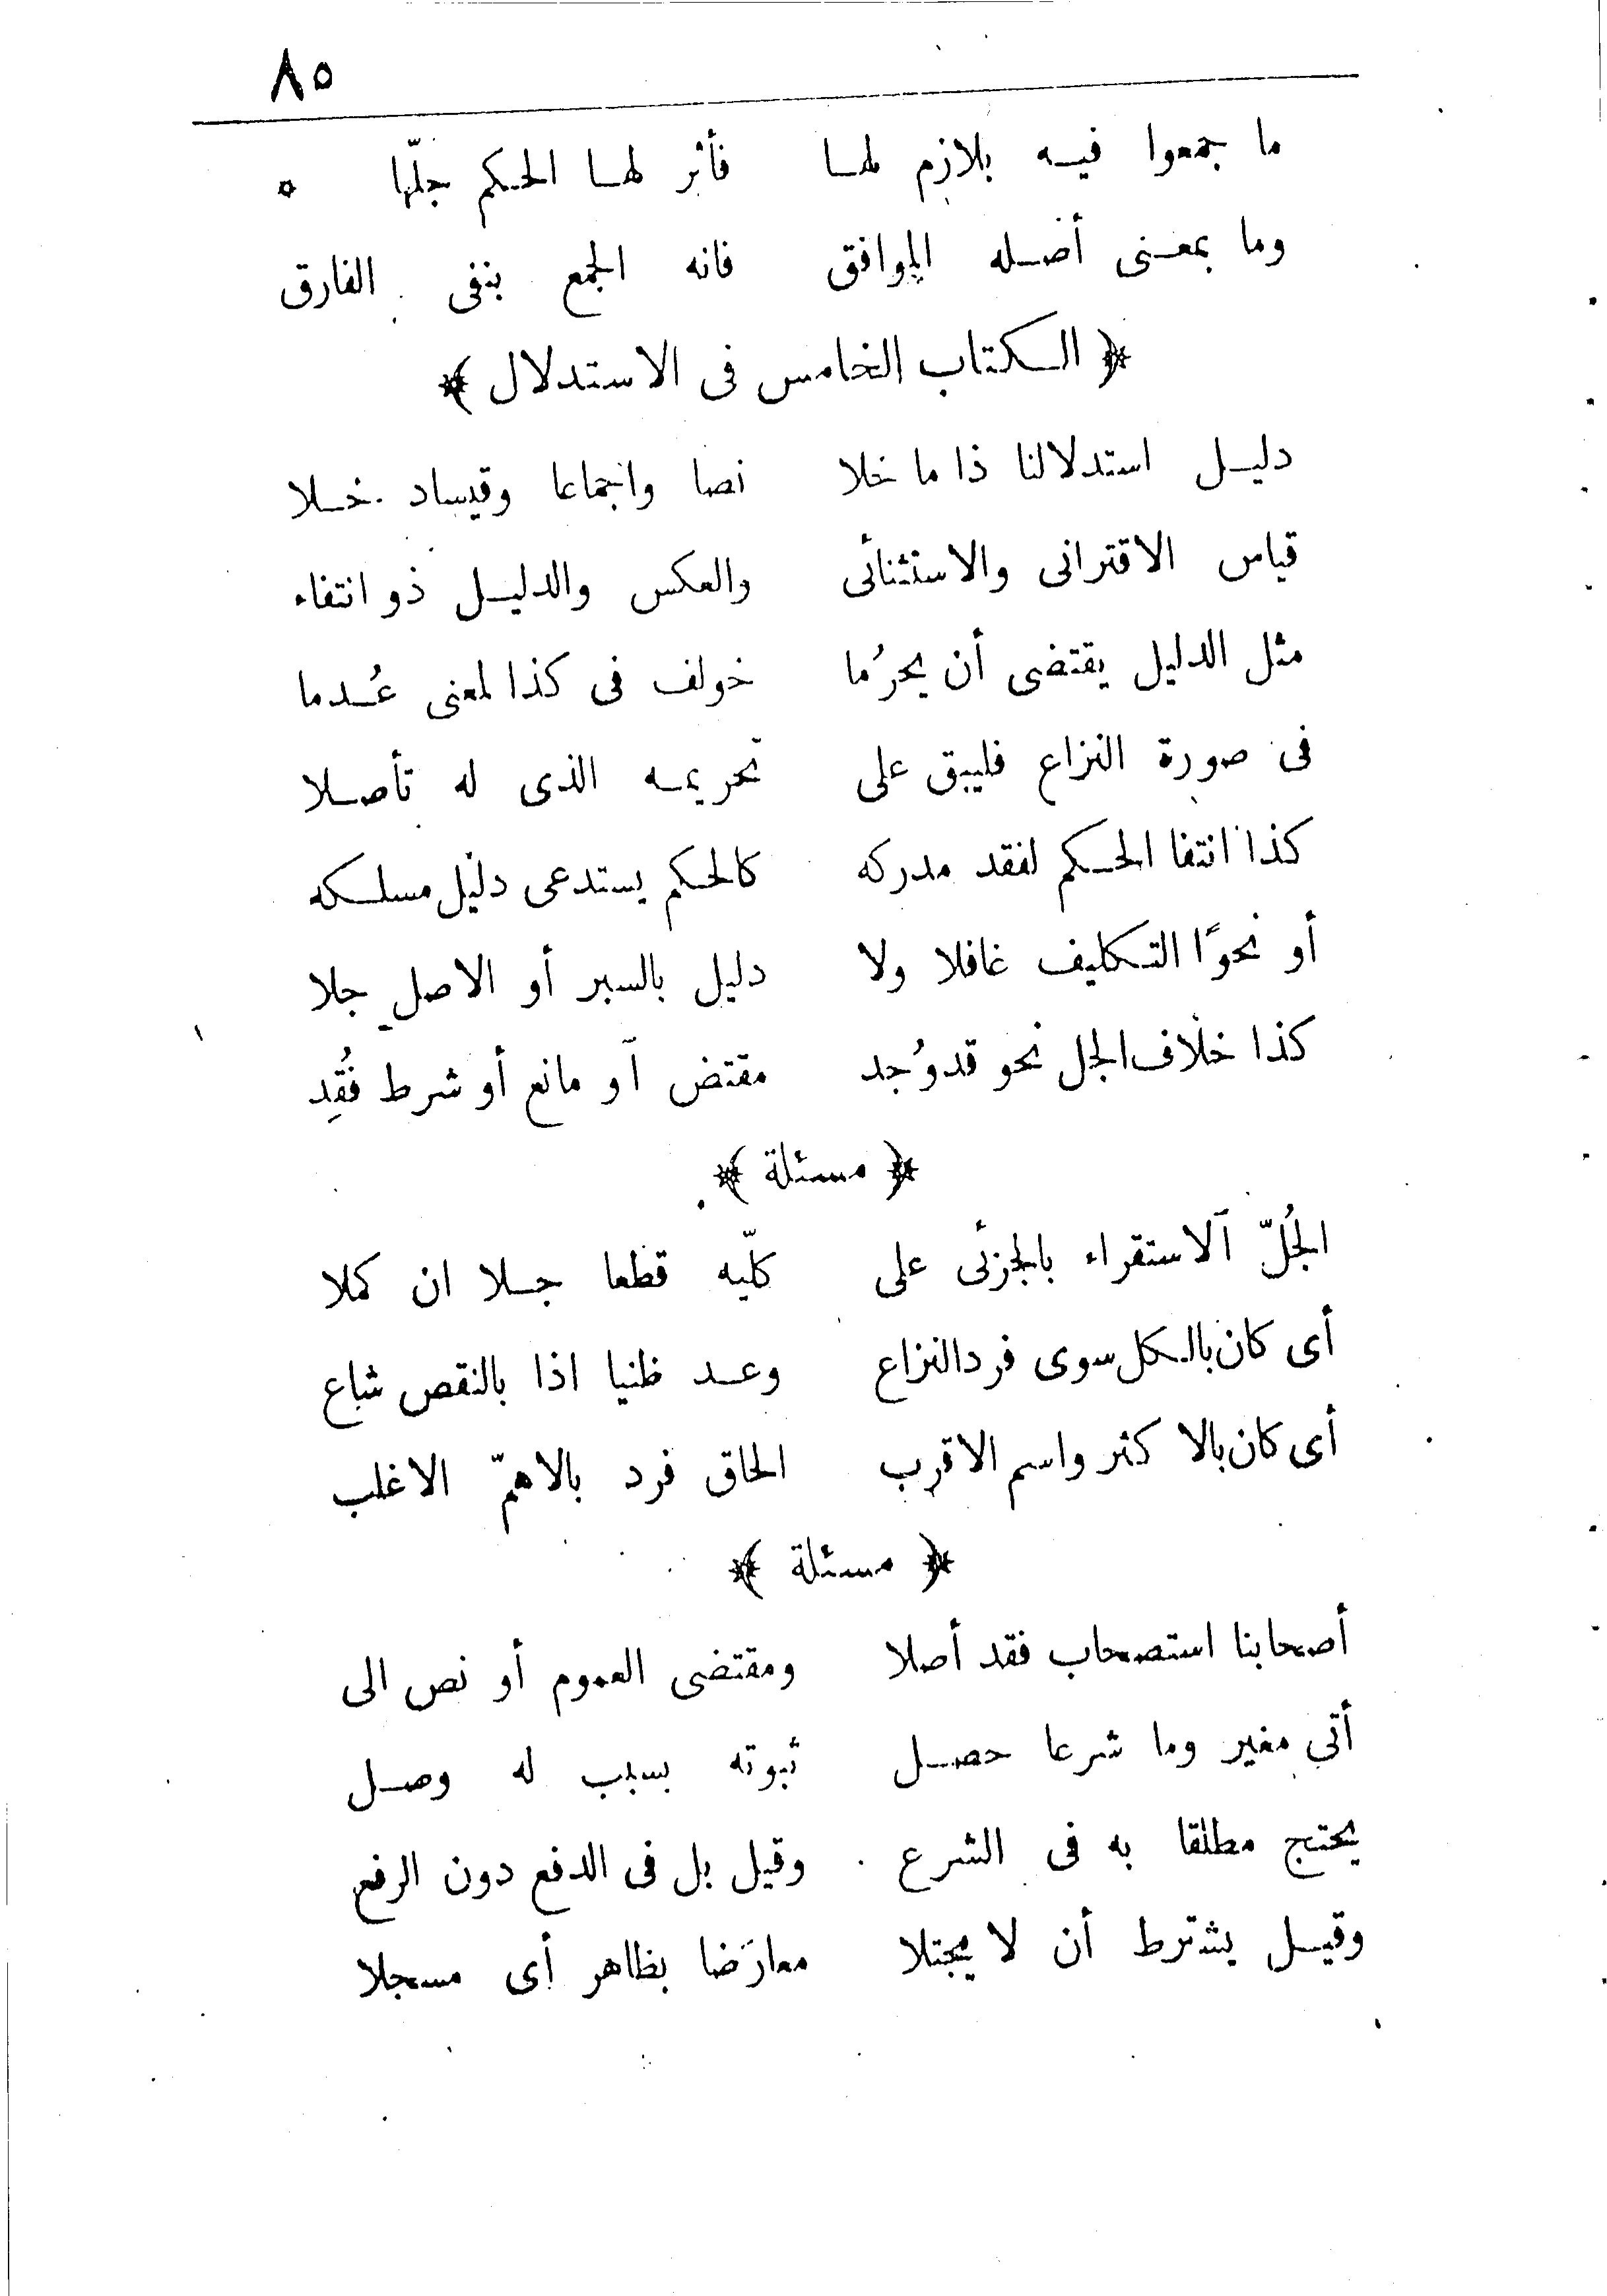 ٨٥
ما جمعوا فيه بلازم لها فأثر لها الحكم جلّها
وما بمعنى أصله الموافق فانه الجمع بنفى الفارق
﴿ الكتاب الخامس فى الاستدلال ﴾
دليل استدلالنا ذا ما خلا نصا واجماعا وقيساد خلا
قياس الاقترانى والاستثنائى والعكس والدليل ذو انتفاء
مثل الدليل يقتضى أن يحرُما خولف فى كذا لمعنى عُدما
فى صورة النزاع فليبق على تحريمه الذى له تأصلا
كذا انتفا الحكم لفقد مدركه كالحكم يستدعى دليل مسلكه
أو نحوًا التكليف غافلا ولا دليل بالسبر أو الاصل جلا
كذا خلاف الجل نحو قد وُجد مقتض آو مانع أو شرط فُقِد
﴿ مسئلة ﴾
الجُلّ آلاستقراء بالجزئى على كلّيه قطعا جلا ان كملا
أى كان بالكل سوى فرد النزاع وعد ظنيا اذا بالنقص شاع
أى كان بالاكثر واسم الاقرب الحاق فرد بالاهمّ الاغلب
﴿ مسئلة ﴾
أصحابنا استصحاب فقد أصلا ومقتضى العموم أو نص الى
أتى مغير وما شرعا حصل ثبوته بسبب له وصل
يحتج مطلقا به فى الشرع وقيل بل فى الدفع دون الرفع
وقيل يشترط أن لا يجتلا معارَضا بظاهر أى مسجلا